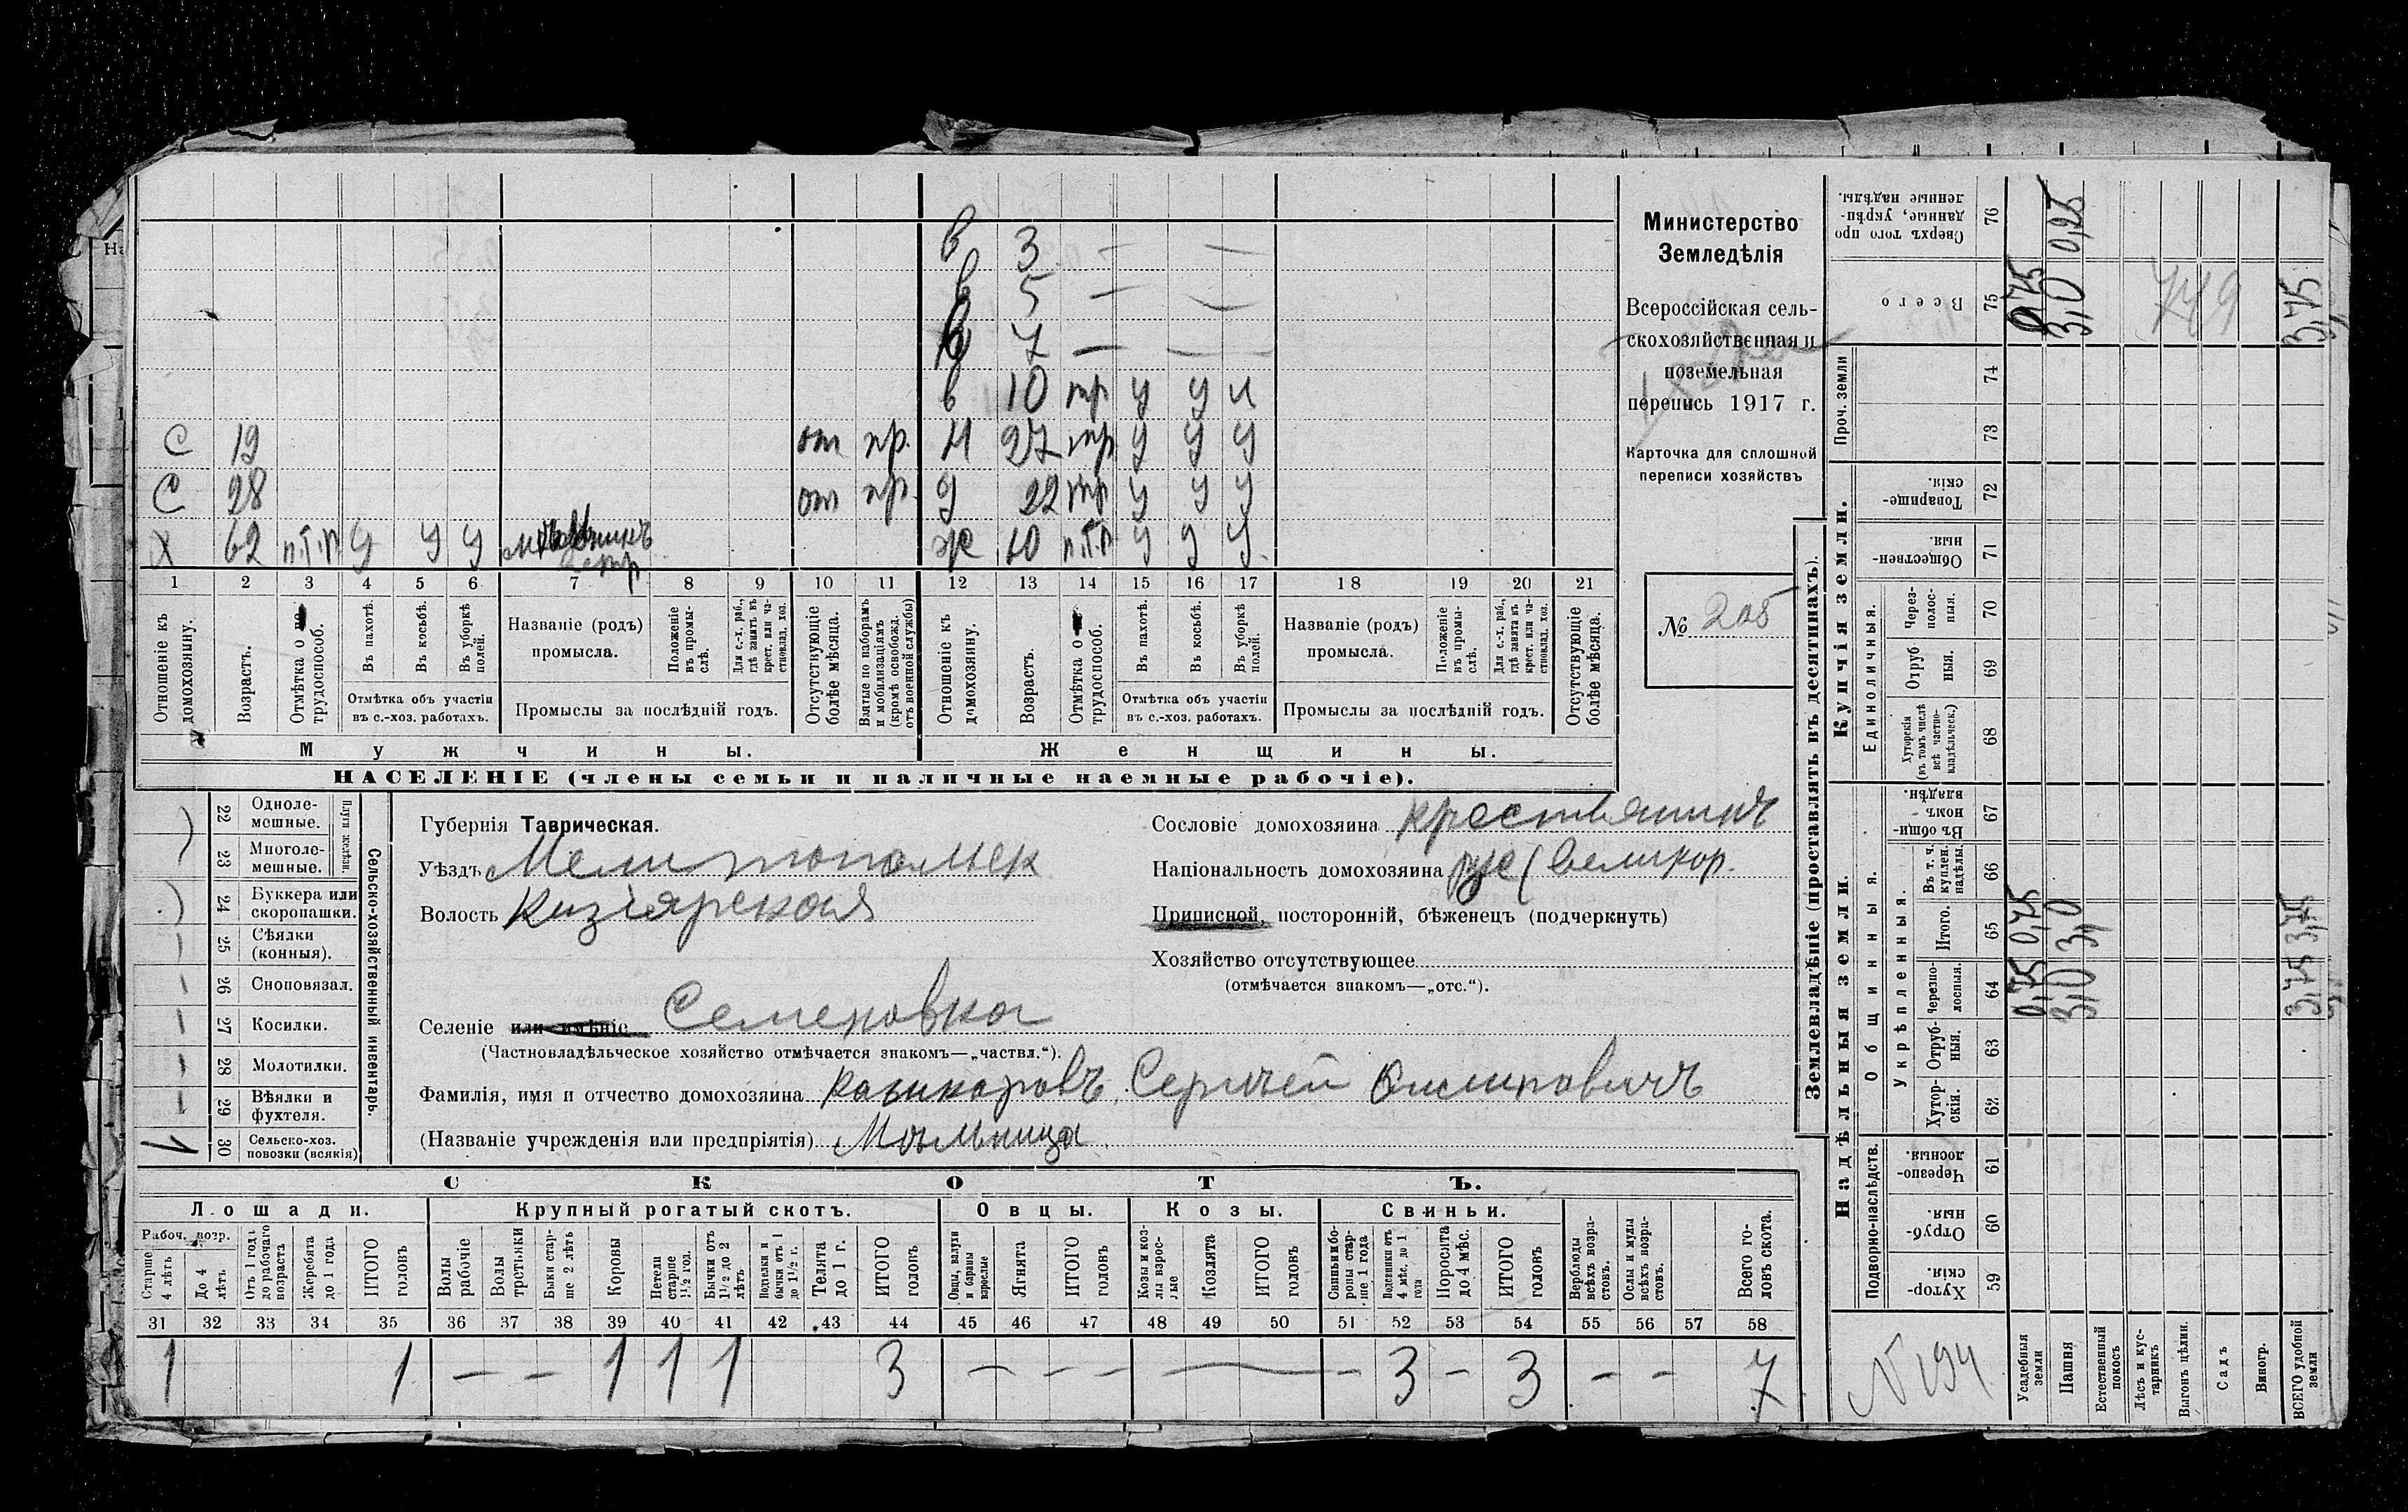 в 3 — —
в 5 — —
в 7 — — —
в 10 тр у у и
С 19 от пр. Н 27 тр у у у
С 28 от пр. д 22 тр у у у
Х 62 п.т.р у у у ж 60 п.т.р у у у
1 2 3 4 5 6 7 8 9 10 11 12 13 14 15 16 17 18 19 20 21
Отношеніе къ домохозяину.
Возрастъ.
Отмѣтка о трудоспособ.
Въ пахотѣ.
Въ косьбѣ.
Въ уборкѣ полей.
Отмѣтка объ участіи въ с.-хоз. работахъ.
Названіе (родъ) промысла.
Положеніе въ промыслѣ.
Для с.-х. раб., гдѣ занятъ въ крест. или частновлад. хоз.
Промыслы за послѣдній годъ.
Отсутствующіе болѣе мѣсяца.
Взятые по наборамъ и мобилизаціямъ (кромѣ освобожд. отъ военной службы)
Отношеніе къ домохозяину.
Возрастъ.
Отмѣтка о трудоспособ.
Въ пахотѣ.
Въ косьбѣ.
Въ уборкѣ полей.
Отмѣтка объ участіи въ с.-хоз. работахъ.
Названіе (родъ) промысла.
Положеніе въ промыслѣ.
Для с.-х. раб., гдѣ занята въ крест. или частновлад. хоз.
Промыслы за послѣдній годъ.
Отсутствующіе болѣе мѣсяца.
Мужчины. Женщины.
НАСЕЛЕНІЕ (члены семьи и наличные наемные рабочіе).
Министерство
Земледѣлія
Всероссійская сель-
скохозяйственная и
поземельная
перепись 1917 г.
Карточка для сплошной
переписи хозяйствъ
№ 205
Сельско-хозяйственный инвентарь.
Плуги желѣзн.
22 Одноле-
мешные.
23 Многоле-
мешные.
24 Буккера или
скоропашки.
25 Сѣялки
(конныя).
26 Сноповязал.
27 Косилки.
28 Молотилки.
29 Вѣялки и
фухтеля.
30 Сельско-хоз.
повозки (всякія)
Губернія Таврическая.
Уѣздъ Мелитопольск
Волость Кизіярская
Селеніе или имѣніе Семеновка
(Частновладѣльческое хозяйство отмѣчается знакомъ—„частвл.“).
Фамилія, имя и отчество домохозяина Сергѣй Осиповичъ
(Названіе учрежденія или предпріятія)
Сословіе домохозяина крестьянинъ
Національность домохозяина рус (великор.
Приписной, посторонній, бѣженецъ (подчеркнуть)
Хозяйство отсутствующее
(отмѣчается знакомъ—„отс.“).
СКОТЪ.
Лошади. Крупный рогатый скотъ. Овцы. Козы. Свиньи.
Рабоч. возр.
Старше 4 лѣтъ
До 4 лѣтъ
Отъ 1 года до рабочаго возраста
Жеребята до 1 года
ИТОГО головъ
Волы рабочіе
Волы третьяки
Быки старше 2 лѣтъ
Коровы
Нетели старше 1½ год.
Бычки отъ 1½ до 2 лѣтъ
Подтелки и бычки отъ 1 до 1½ г.
Телята до 1 г.
ИТОГО головъ
Овцы, валухи и бараны взрослые
Ягнята
ИТОГО головъ
Козы и козлы взрослые
Козлята
ИТОГО головъ
Свиньи и бороны старше 1 года
Подсвинки отъ 4 мѣс. до 1 года
Поросята до 4 мѣс.
ИТОГО головъ
Верблюды всѣхъ возрастовъ.
Ослы и мулы всѣхъ возрастовъ.
Всего головъ скота.
31 32 33 34 35 36 37 38 39 40 41 42 43 44 45 46 47 48 49 50 51 52 53 54 55 56 57 58
1 1 — — 1 1 1 3 — — — — — 3 — 3 — — 7
Землевладѣніе (проставлять въ десятинахъ).
Купчія земли.
Надѣльныя земли.
Сверхъ того проданные, укрѣпленные надѣлы. 76
Всего 75
Проч. земли 74 73
Товарищескія. 72
Общественныя. 71
Единоличныя.
Черезполосныя. 70
Отрубныя. 69
Хуторскія (въ томъ числѣ всѣ частновладѣльческ.) 68
Общинныя.
Въ общинномъ владѣн. 67
Укрѣпленныя.
Въ т. ч. куплен. надѣлы. 66
Итого. 65
Черезполосныя. 64
Отрубныя. 63
Хуторскія. 62
Подворно-наслѣдств.
Черезполосныя. 61
Отрубныя. 60
Хуторскія. 59
Усадебныя земли 0,75 0,75 0,75
Пашня 3,0 3,0 3,0 0,25
Естественный покосъ
Лѣсъ и кустарникъ
Выгонъ цѣлин.
Садъ
Виногр.
ВСЕГО удобной земли 3,75 3,75 3,75
749
N 194